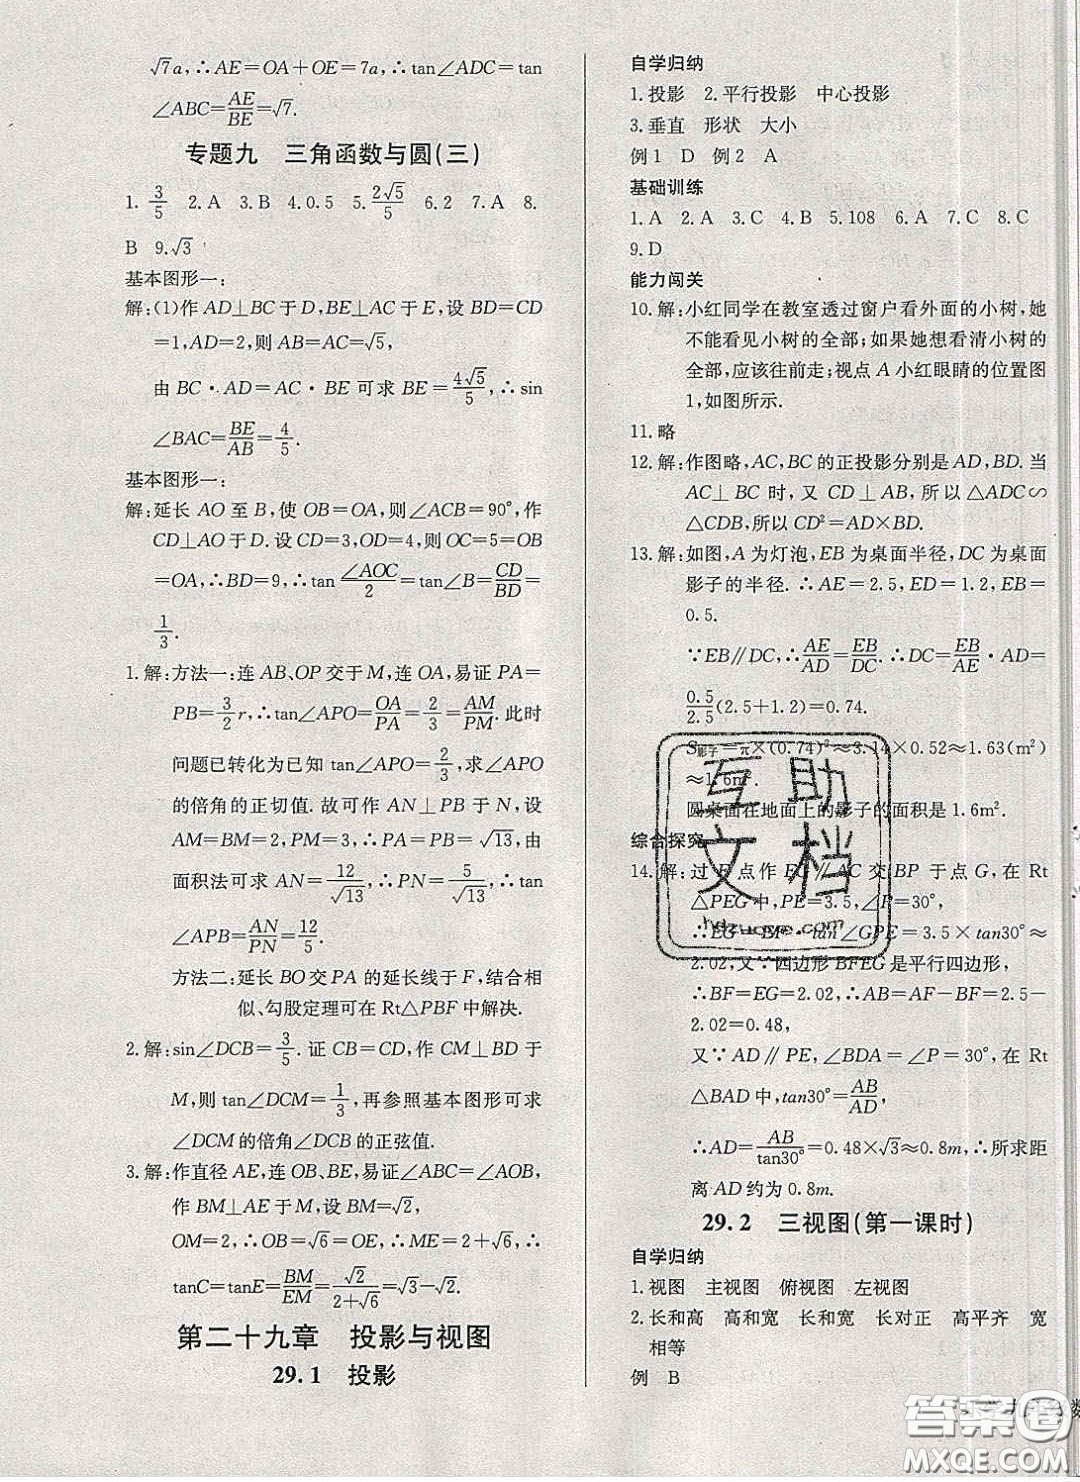 √7a,∴AE=OA+OE=7a,∴tan∠ADC=tan
∠ABC=AE/BE=√7.
专题九 三角函数与圆(三)
1. 3/5 2.A 3.B 4.0.5 5. 2√5/5 6.2 7.A 8.
B 9.√3
基本图形一:
解:(1)作AD⊥BC于D,BE⊥AC于E,设BD=CD
=1,AD=2,则AB=AC=√5,
由BC·AD=AC·BE可求BE=4√5/5,∴sin
∠BAC=BE/AB=4/5.
基本图形一:
解:延长AO至B,使OB=OA,则∠ACB=90°,作
CD⊥AO于D.设CD=3,OD=4,则OC=5=OB
=OA,∴BD=9,∴tan∠AOC/2=tan∠B=CD/BD=
1/3.
1.解:方法一:连AB、OP交于M,连OA,易证PA=
PB=3/2 r,∴tan∠APO=OA/PA=2/3=AM/PM.此时
问题已转化为已知tan∠APO=2/3,求∠APO
的倍角的正切值.故可作AN⊥PB于N,设
AM=BM=2,PM=3,∴PA=PB=√13,由
面积法可求AN=12/√13,∴PN=5/√13,∴tan
∠APB=AN/PN=12/5.
方法二:延长BO交PA的延长线于F,结合相
似、勾股定理可在Rt△PBF中解决.
2.解:sin∠DCB=3/5.证CB=CD,作CM⊥BD于
M,则tan∠DCM=1/3,再参照基本图形可求
∠DCM的倍角∠DCB的正弦值.
3.解:作直径AE,连OB、BE,易证∠ACB=∠AOB,
作BM⊥AE于M,设BM=√2,
OM=2,∴OB=√6=OE,∴ME=2+√6,∴
tanC=tanE=BM/EM=√2/(2+√6)=√3-√2.
第二十九章 投影与视图
29.1 投影
自学归纳
1.投影 2.平行投影 中心投影
3.垂直 形状 大小
例1 D 例2 A
基础训练
1.A 2.A 3.C 4.B 5.108 6.A 7.C 8.C
9.D
能力闯关
10.解:小红同学在教室透过窗户看外面的小树,她
不能看见小树的全部;如果她想看清小树的
全部,应该往前走;视点A小红眼睛的位置图
1,如图所示.
11.略
12.解:作图略,AC,BC的正投影分别是AD,BD.当
AC⊥BC时,又CD⊥AB,所以△ADC∽
△CDB,所以CD²=AD×BD.
13.解:如图,A为灯泡,EB为桌面半径,DC为桌面
影子的半径.∴AE=2.5,ED=1.2,EB=
0.5.
∵EB∥DC,∴AE/AD=EB/DC.∴DC=EB/AE·AD=
0.5/2.5(2.5+1.2)=0.74.
S影子=π×(0.74)²≈3.14×0.52≈1.63(m²)
≈1.6m².
圆桌面在地面上的影子的面积是1.6m².
综合探究
14.解:过E点作EG∥AC交BP于点G,在Rt
△PEG中,PE=3.5,∠P=30°,
∴EG=EP·tan∠GPE=3.5×tan30°≈
2.02,又∵四边形BFEG是平行四边形,
∴BF=EG=2.02,∴AB=AF-BF=2.5-
2.02=0.48,
又∵AD∥PE,∠BDA=∠P=30°,在Rt
△BAD中,tan30°=AB/AD
∴AD=AB/tan30°=0.48×√3≈0.8m,∴所求距
离AD约为0.8m.
29.2 三视图(第一课时)
自学归纳
1.视图 主视图 俯视图 左视图
2.长和高 高和宽 长和宽 长对正 高平齐 宽
相等
例 B
互助
文档
hdzuoye.com
答案圈
MXQE.COM
数